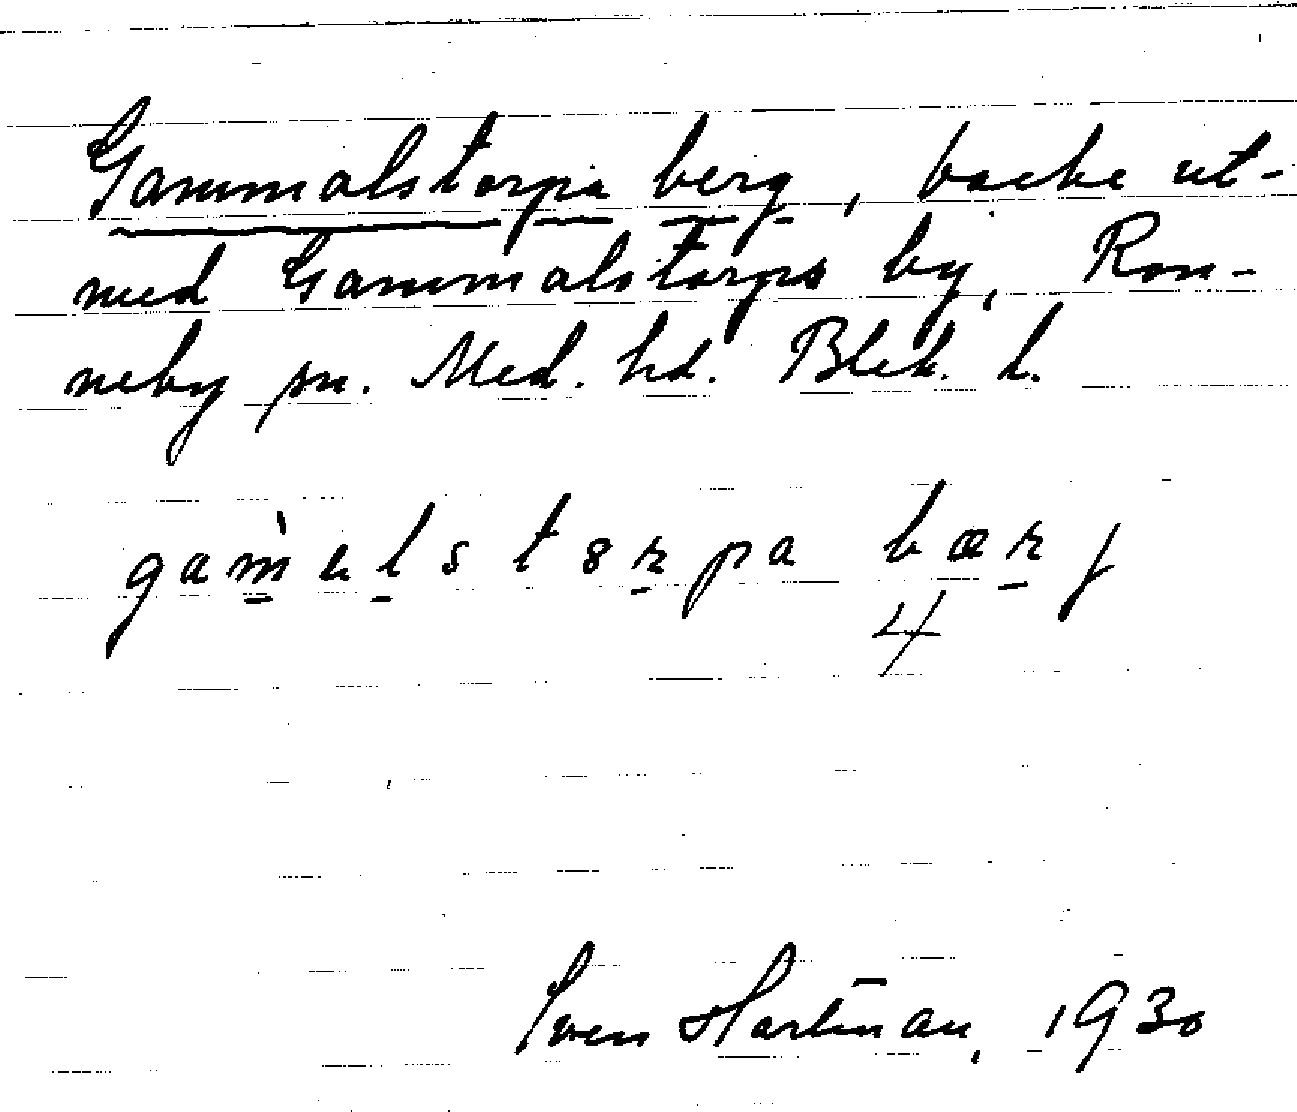 Gammalstorpa berg, backe ut-
med Gammalstorps by, Ron-
neby sn. Med. hd. Blek. l.
gam̀əlstorpa bærj
4
Sven Hartman, 1930